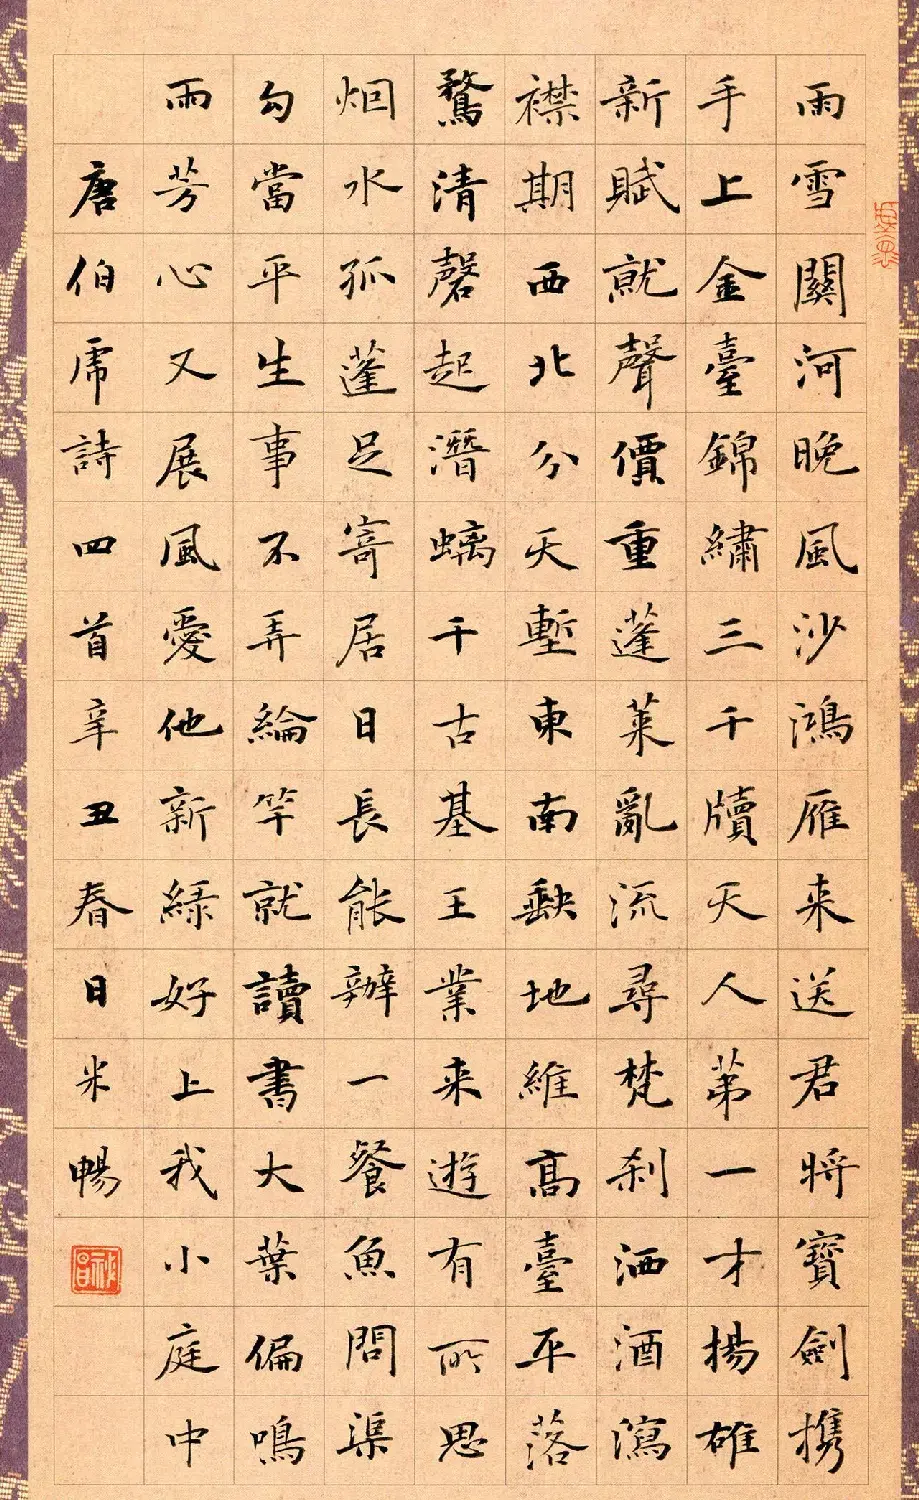 雨雪關河晚風沙鴻雁来送君將寶劍携
手上金臺錦繡三千牘天人第一才揚雄
新賦就聲價重蓬萊亂流尋梵刹洒酒瀉
襟期西北分天塹東南缺地維高臺平落
鶩清磬起潛螭千古基王業来遊有所思
烟水孤蓬足寄居日長能辦一餐魚問渠
勾當平生事不弄綸竿就讀書大葉偏鳴
雨芳心又展風愛他新綠好上我小庭中
唐伯虎詩四首辛丑春日米暢